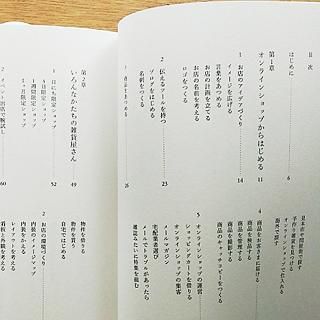 目次
はじめに
第1章
オンラインショップからはじめる 11
1 お店のアイデアづくり 14
イメージを広げる
言葉をあつめる
お店の計画を立てる
お店の名前を考える
ロゴをつくる
2 伝えるツールを持つ 23
ブログをはじめる
名刺をつくる
メールマガジン
26
見本市や問屋街で探す
手作り雑貨を見つける
オンラインショップで仕入れる
海外で探す
4 商品をお客さまに届ける
商品を管理する
商品を検品する
商品を撮影する
商品のキャッチコピーをつくる
5 オンラインショップの運営
ショッピングカートを借りる
オンラインショップの集客
宅配業者選び
メールでトラブルがあったら
雑誌みたいに特集を組む
第2章
いろんなかたちの雑貨屋さん 49
1 日にち限定ショップ 52
1日限定ショップ
1週間限定ショップ
1ヶ月限定ショップ
2 イベント出店で腕試し 60
物件を借りる
物件を買う
自宅ではじめる
2 お店の環境づくり
内装のイメージマップ
内装をかえる
レイアウトを考える
看板と外観を考える